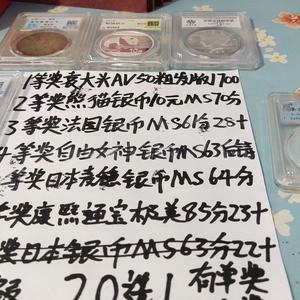 1等奖袁大头AU50粗发版1700
2等奖熊猫银币10元MS70分
3等奖法国银币MS61分28+
4等奖自由女神银币MS63
等奖日本老龙银币MS64分
等奖康熙通宝极美85分23+
奖日本银币MS63分22+
20选1有单奖